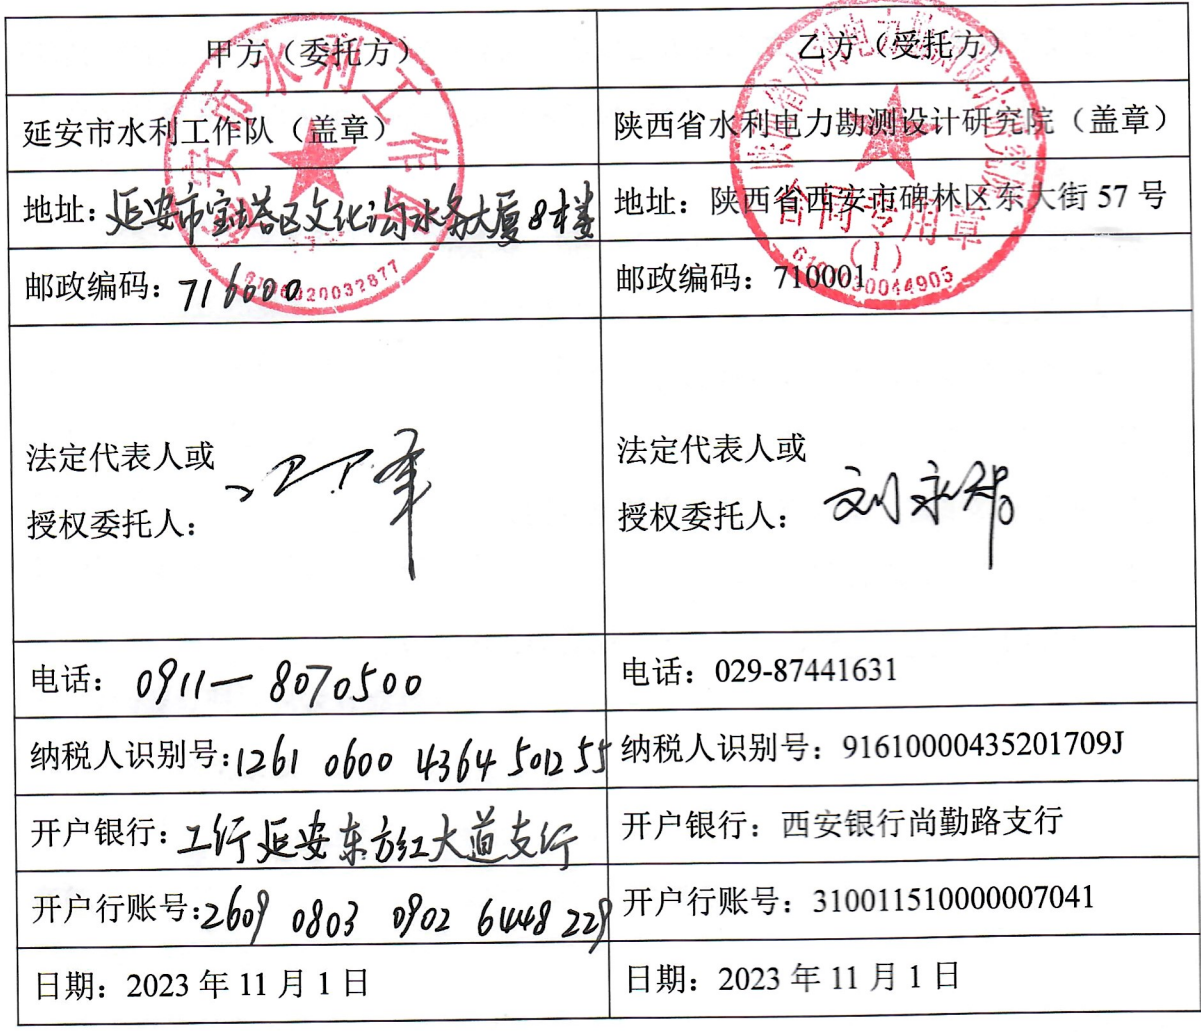 甲方（委托方）
乙方（受托方）
延安市水利工作队（盖章）
陕西省水利电力勘测设计研究院（盖章）
地址：延安市宝塔区文化沟水务大厦8楼
地址：陕西省西安市碑林区东大街 57 号
邮政编码：716000
邮政编码：710001
法定代表人或
授权委托人：
法定代表人或
授权委托人：刘永
电话：0911—8070500
电话：029-87441631
纳税人识别号：1261 0600 4364 501255
纳税人识别号：91610000435201709J
开户银行：工行延安东方红大道支行
开户银行：西安银行尚勤路支行
开户行账号：2609 0803 0902 6448 229
开户行账号：310011510000007041
日期：2023 年 11 月 1 日
日期：2023 年 11 月 1 日
延安市水利工作队
陕西省水利电力勘测设计研究院
合同专用章
（1）